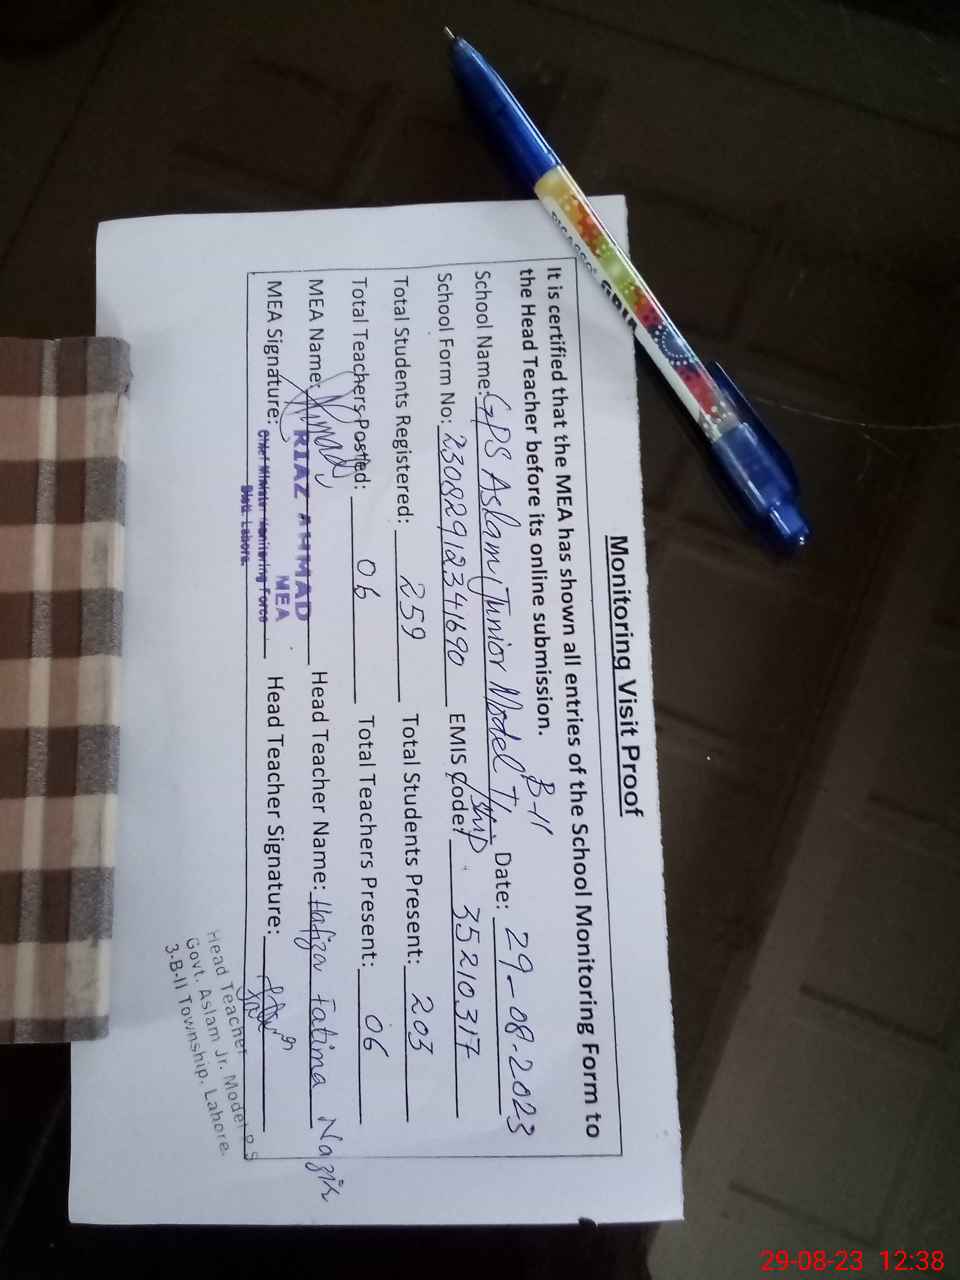 Monitoring Visit Proof
It is certified that the MEA has shown all entries of the School Monitoring Form to
the Head Teacher before its online submission.
B-II
School Name: GPS Aslam Junior Model T/ship. Date: 29-08-2023
School Form No: 23082912341690 EMIS Code: 35210317
Total Students Registered: 259 Total Students Present: 203
Total Teachers Posted: 06 Total Teachers Present: 06
MEA Name: RIAZ AHMAD Head Teacher Name: Hafiza Fatima Nazir
MEA
MEA Signature: Chief Minister Monitoring Force Head Teacher Signature:
Distt. Lahore.
Head Teacher
Govt. Aslam Jr. Model P S
3-B-II Township, Lahore.
PICASSO
29-08-23 12:38